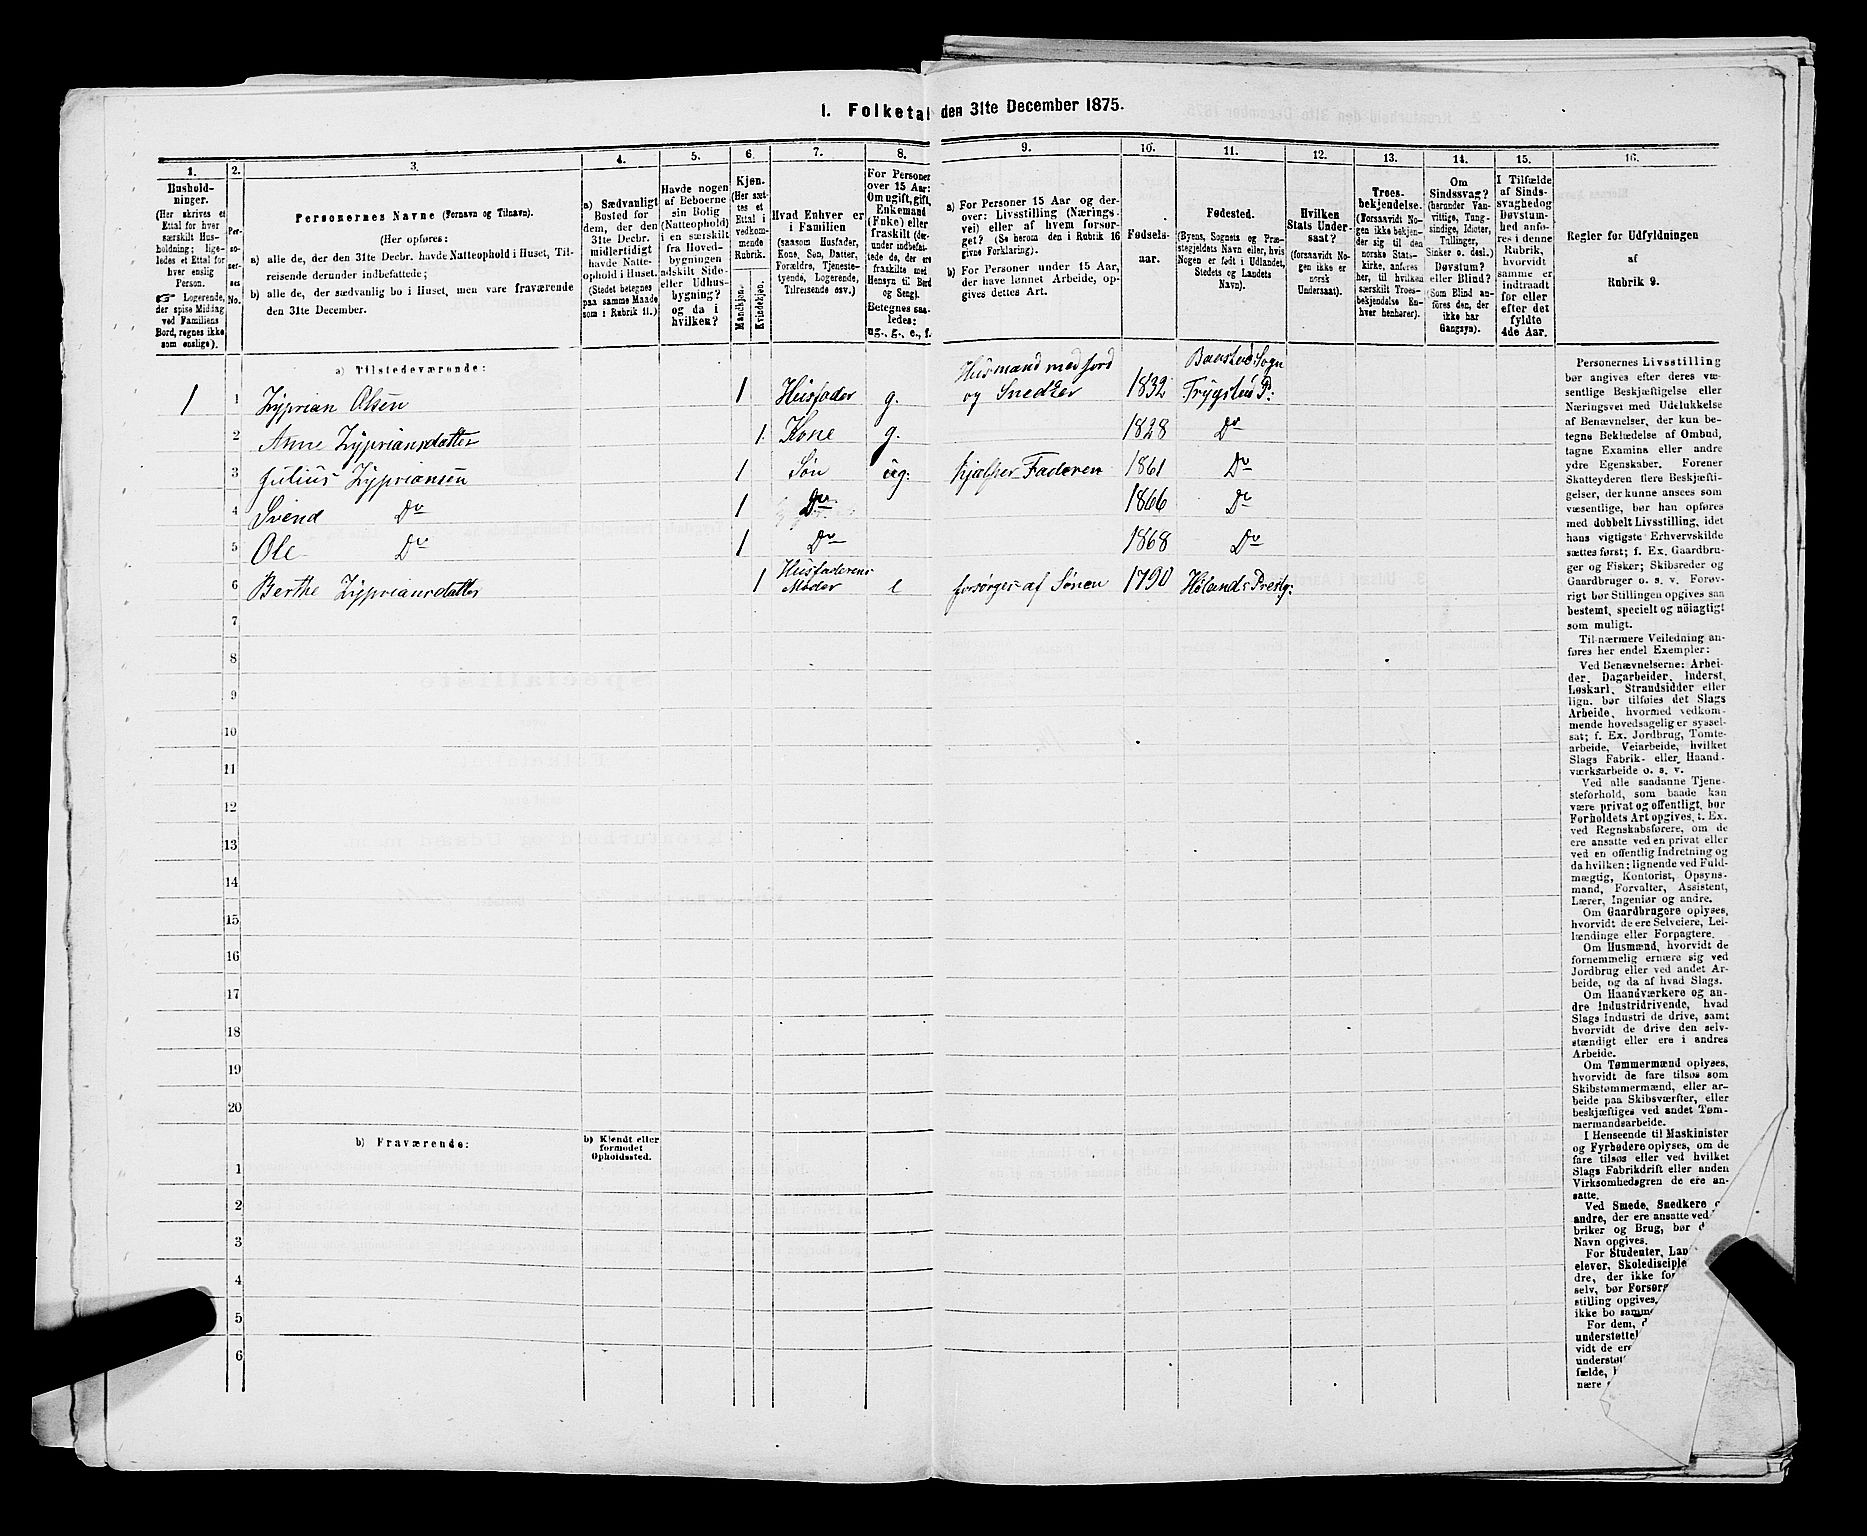 1. Folketal den 31te December 1875.
1.
2.
3.
4.
5.
6.
7.
8.
9.
10.
11.
12.
13.
14.
15.
16.
Hushold-
ninger.
(Her skrives et
Ettal for hver
særskilt Hus-
holdning; lige-
ledes et Ettal for
hver enslig
Person.
☞ Logerende,
der spise Middag
ved Familiens
Bord, regnes ikke
som enslige).
Per-
so-
ner-
ses-
No.
Personernes Navne (Fornavn og Tilnavn).
(Her opføres:
a) alle de, der den 31te Decbr. havde Natteophold i Huset, Til-
reisende derunder indbefattede;
b) alle de, der sædvanlig bo i Huset, men vare fraværende
den 31te December.
a) Sædvanligt
Bosted for
dem, der den
31te Decbr.
midlertidigt
havde Natte-
ophold i Huset.
(Stedet betegnes
paa samme Maade
som i Rubrik 11.)
Havde nogen
af Beboerne
sin Bolig
(Natteophold)
i en særskilt
fra Hoved-
bygningen
adskilt Side-
eller Udhus-
bygning?
og da i
hvilken?
Kjøn.
(Her sæt-
tes et
Ettal i
vedkom-
mende
Rubrik.
Mandkjøn.
Kvindekjøn.
Hvad Enhver er
i Familien
(saasom Husfader,
Kone, Søn, Datter,
Forældre, Tjeneste-
tyende, Logerende,
Tilreisende osv.)
For Personer
over 15 Aar:
Om ugift, gift,
Enkemand
(Enke) eller
fraskilt (der-
under indbefat-
tede de, der ere
fraskilte med
Hensyn til Bord
og Seng).
Betegnes saa-
ledes:
ug., g., e., f.
a) For Personer 15 Aar og der-
over: Livsstilling (Nærings-
vei) eller af hvem forsør-
get? (Se herom den i Rubrik 16
givne Forklaring).
b) For Personer under 15 Aar,
der have lønnet Arbeide, op-
gives dettes Art.
Fødsels-
aar.
Fødested.
(Byens, Sognets og Præ-
stegjeldets Navn eller, hvis
Nogen er født i Udlandet,
Stedets og Landets
Navn).
Hvilken
Stats Under-
saat?
(forsaavidt No-
gen ikke er
norsk
Undersaat).
Troes-
bekjendelse.
(Forsaavidt No-
gen ikke bekjen-
der sig til den
norske Stats-
kirke, anføres
her, til hvilken
særskilt Troes-
bekjendelse En-
hver henhører).
Om
Sindssvag?
(herunder Van-
vittige, Tung-
sindige, Idioter,
Tullinger,
Sinker o. desl.)
Døvstum?
eller Blind?
(Som Blind an-
føres den, der
ikke har
Gangsyn).
I Tilfælde
af Sinds-
svaghed og
Døvstum-
hed anfø-
res i denne
Rubrik,
hvorvidt
samme er
indtraadt
før eller
efter det
fyldte
4de Aar.
Regler for Udfyldningen
af
Rubrik 9.
a) Tilstedeværende:
Husmand med Jord
Baastad Sogn
1 1 Zyprian Olsen 1 Husfader g. og Snedker 1832 Trygstad P:
2 Anne Zypriansdatter 1 Kone g. 1828 Do
3 Julius Zypriansen 1 Søn ug. hjælper Faderen 1861 Do
4 Svend Do 1 Do 1866 Do
5 Ole Do 1 Do 1868 Do
Husfaderens
6 Berthe Zypriansdatter 1 Moder e forsørges af Sønen 1790 Hølands Prestg:
7
8
9
10
11
12
13
14
15
16
17
18
19
20
b) Fraværende:
b) Kjendt eller
formodet
Opholdssted.
1
2
3
4
5
6
Personernes Livsstilling
bør angives efter deres væ-
sentlige Beskjæftigelse eller
Næringsvei med Udelukkelse
af Benævnelser, der kun be-
tegne Beklædelse af Ombud,
tagne Examina eller andre
ydre Egenskaber. Forener
Skatteyderen flere Beskjæfti-
gelser, der kunne ansees som
væsentlige, bør han opføres
med dobbelt Livsstilling, idet
hans vigtigste Erhvervskilde
sættes først; f. Ex. Gaardbru-
ger og Fisker; Skibsreder og
Gaardbruger o. s. v. Forøv-
rigt bør Stillingen opgives saa
bestemt, specielt og nöiagtigt
som muligt.
Til nærmere Veiledning an-
føres her endel Exempler:
Ved Benævnelserne: Arbei-
der, Dagarbeider, Inderst,
Løskarl, Strandsidder eller
lign. bør tilføies det Slags
Arbeide, hvormed vedkom-
mende hovedsagelig er syssel-
sat; f. Ex. Jordbrug, Tømte-
arbeide, Veiarbeide, hvilket
Slags Fabrik- eller Haand-
værksarbeide o. s. v.
Ved alle saadanne Tjene-
steforhold, som baade kan
være privat og offentligt, bør
Forholdets Art opgives, f. Ex.
ved Regnskabsførere, om de
ere ansatte ved en privat eller
ved en offentlig Indretning og
da hvilken; lignende ved Fuld-
mægtig, Kontorist, Opsyns-
mand, Forvalter, Assistent,
Lærer, Ingeniør og andre.
Om Gaardbrugere oplyses,
hvorvidt de ere Selveiere, Lei-
lændinge eller Forpagtere.
Om Husmænd, hvorvidt de
fornemmelig ernære sig ved
Jordbrug eller ved andet Ar-
beide, og da af hvad Slags.
Om Haandværkere og an-
dre Industridrivende, hvad
Slags Industri de drive, samt
hvorvidt de drive den selv-
stændigt eller ere i andres
Arbeide.
Om Tømmermænd oplyses,
hvorvidt de fare tilsøs som
Skibstømmermænd, eller ar-
beide paa Skibsværfter, eller
beskjæftiges ved andet Tøm-
mermandsarbeide.
I Henseende til Maskinister
og Fyrbødere oplyses, om de
fare tilsøs eller ved hvilket
Slags Fabrikdrift eller anden
Virksomhedsgren de ere an-
satte.
Ved Smede, Snedkere o
andre, der ere ansatte ved
briker og Brug, bør
Navn opgives.
For Studenter, Lan
elever, Skolediscipl
dre, der ikke for
selv, bør Forsør
stilling opgives,
ikke bo samme
For dem,
understøttel
vidt de ere
understøt
fælde,
nære